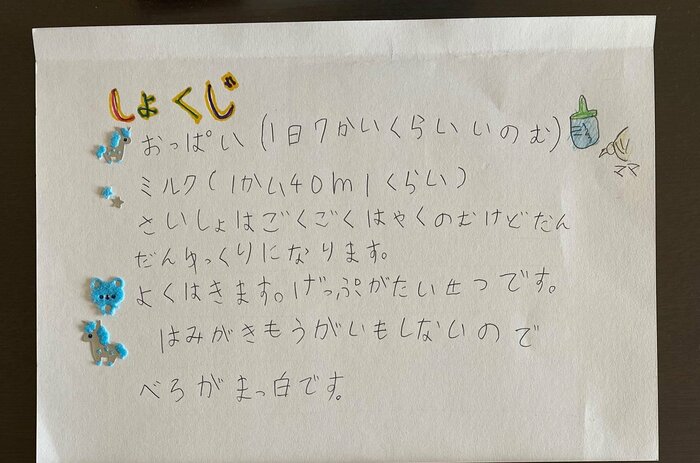 しょくじ
おっぱい(1日7かいくらいいのむ)
ママ
ミルク(1かい40mlくらい)
さいしょはごくごくはやくのむけどだん
だんゆっくりになります。
よくはきます。げっぷがたい士つです。
はみがきもうがいもしないので
べろがまっ白です。